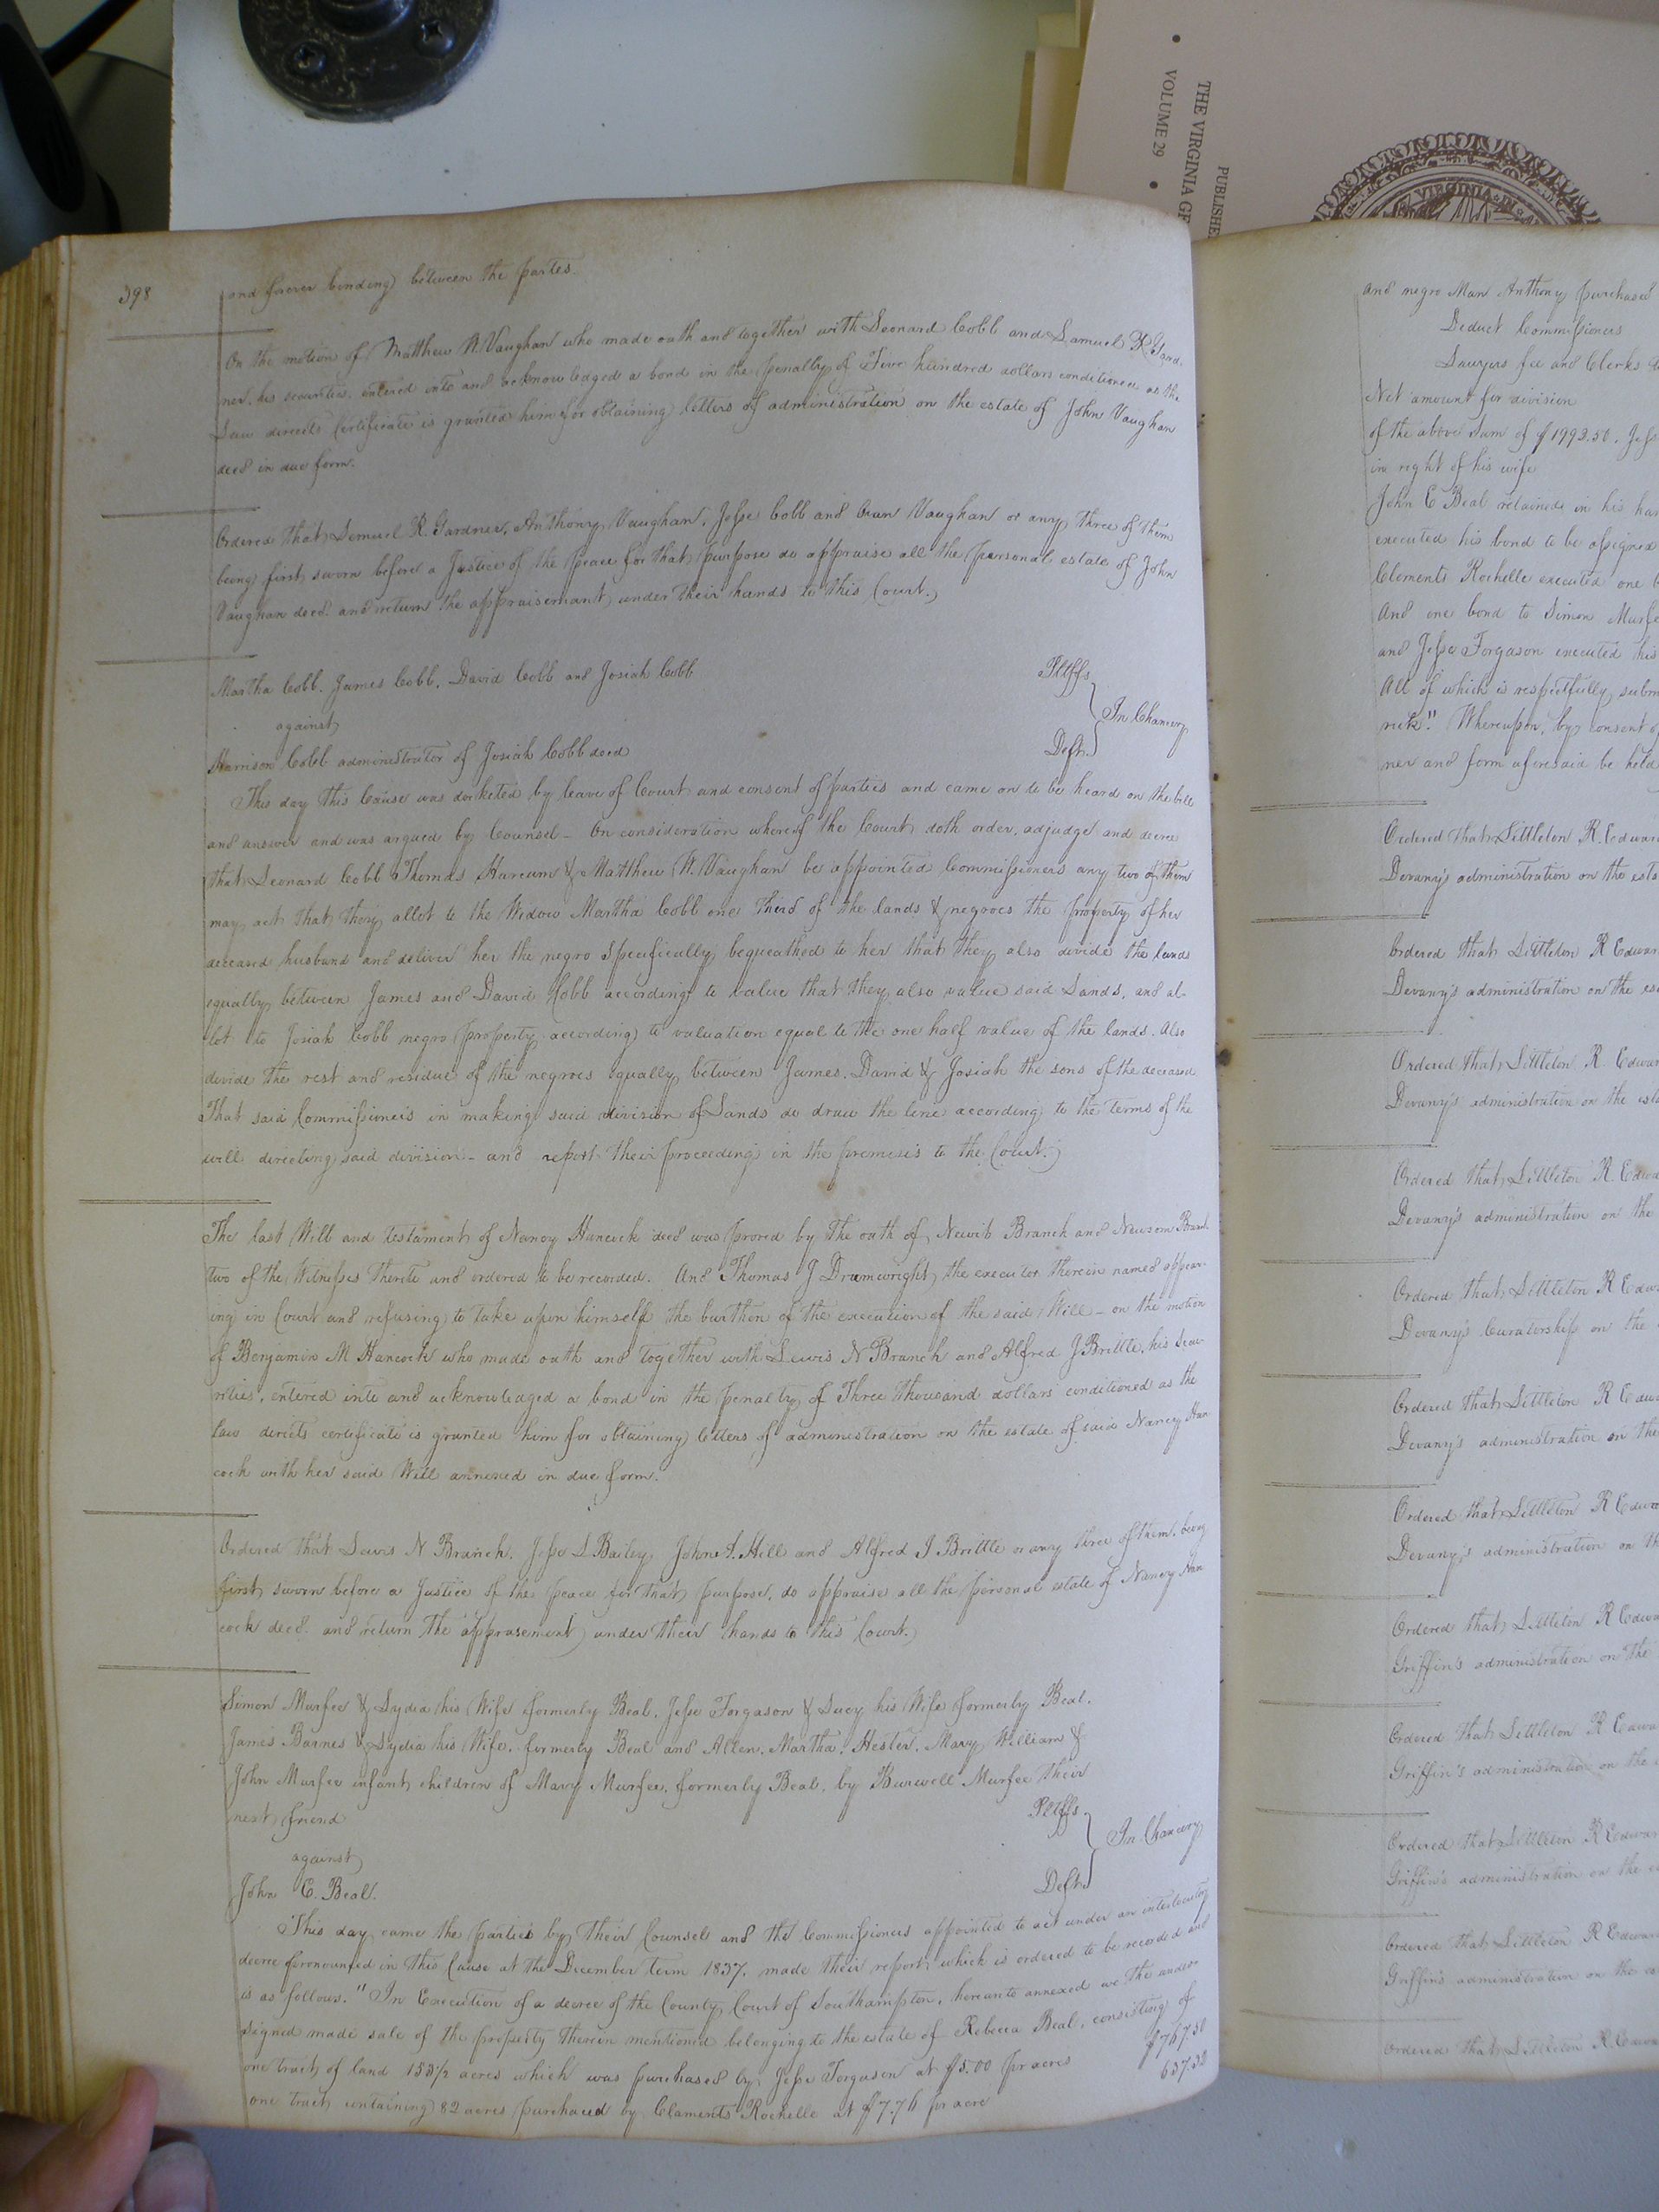 THE VIRGINIA GE
VOLUME 29
PUBLISHE
VIRGINIA
398
and forever binding between the parties.
On the motion of Matthew W. Vaughan who made oath and together with Leonard Cobb and Lemuel R Gard-
ner, his securities, entered into and acknowledged a bond in the penalty of Five hundred dollars conditioned as the
Law directs Certificate is granted him for obtaining letters of administration on the estate of John Vaughan
decd in due form.
Ordered that Lemuel R. Gardner, Anthony Vaughan, Jesse Cobb and Vaughan or any three of them
being first sworn before a Justice of the peace for that purpose do appraise all the personal estate of John
Vaughan decd. and return the appraisemant under their hands to this Court.
Martha Cobb, James Cobb, David Cobb and Josiah Cobb
Pltffs
against
In Chancery
Harrison Cobb administrator of Josiah Cobb decd
Deft.
This day this Cause was docketed by leave of Court and consent of parties and came on to be heard on the bill
and answer and was argued by Counsel - On consideration whereof the Court doth order, adjudge and decree
that Leonard Cobb Thomas Harcum & Matthew W. Vaughan be appointed Commissioners any two of them
may act that they allot to the Widow Martha Cobb one third of the lands & negroes the property of her
deceased husband and deliver her the negro specifically bequeathed to her that they also divide the lands
equally between James and David Cobb according to value that they also value said Lands, and al-
lot to Josiah Cobb negro property according to valuation equal to the one half value of the lands. Also
divide the rest and residue of the negroes equally between James, David & Josiah the sons of the deceased
That said Commissioners in making said division of Lands do draw the line according to the terms of the
will directing said division - and report their proceeding in the premesis to the Court.
The last Will and testament of Nancy Hancock decd was proved by the oath of Newit Branch and Newsom Branch
two of the Witnesses thereto and ordered to be recorded. And Thomas J Drumwright the executor therein named appear-
ing in Court and refusing to take upon himself the burthen of the execution of the said Will - on the motion
of Benjamin M Hancock who made oath and together with Lewis N Branch and Alfred J Brittle, his secu-
rities, entered into and acknowledged a bond in the penalty of Three thousand dollars conditioned as the
Law directs certificate is granted him for obtaining letters of administration on the estate of said Nancy Han
cock with her said Will annexed in due form.
Ordered that Lewis N Branch, Jesse L Bailey John A. Hill and Alfred J Brittle or any three of them, being
first sworn before a Justice of the peace for that purpose, do appraise all the personal estate of Nancy Han
cock decd. and return the apprasement under their hands to this Court.
Simon Murfee & Lydia his Wife formerly Beal, Jesse Forgason & Lucy his Wife formerly Beal,
James Barnes & Lydia his Wife, formerly Beal and Allen, Martha, Hester, Mary William &
John Murfee infant children of Mary Murfee, formerly Beal, by Burwell Murfee their
next friend
Pltffs
against
In Chancery
John E. Beal.
Deft.
This day came the parties by their Counsel and the Commissioners appointed to act under an interlocutory
decree pronounced in this Cause at the December term 1837, made their report which is ordered to be recorded and
is as follows. "In Execution of a decree of the County Court of Southampton, hereunto annexed we the under-
signed made sale of the property therein mentioned belonging to the estate of Rebecca Beal, consisting of
one tract of land 153 1/2 acres which was purchased by Jesse Forgason at $5.00 pr acre
$767.50
one tract containing 82 acres purchased by Claments Rochelle at $7.76 pr acre
637.32
and negro Man Anthony purchased
Deduct Commissioners
Lawyers fee and Clerks
Net amount for division
of the above sum of $1993.50. Jess
in right of his wife
John E Beal retained in his han
executed his bond to be assigned
Clements Rochelle executed one
And one bond to Simon Murfe
and Jesse Forgason executed his
All of which is respectfully subm
rick." Whereupon, by consent o
ner and form aforesaid be held
Ordered that Littleton R. Edwar
Devany's administration on the esta
Ordered that Littleton R Edwar
Devany's administration on the es
Ordered that Littleton R. Edwar
Devany's administration on the est
Ordered that Littleton R. Edwa
Devany's administration on the
Ordered that Littleton R Edwa
Devany's Curatorship on the
Ordered that Littleton R Edwa
Devany's administration on the
Ordered that Littleton R Edwa
Devany's administration on th
Ordered that Littleton R Edwa
Griffin's administration on the
Ordered that Littleton R. Edwa
Griffin's administration on the
Ordered that Littleton R Edwar
Griffin's administration on the e
Ordered that Littleton R Edwar
Griffin's administration on the es
Ordered that Littleton R Edwa